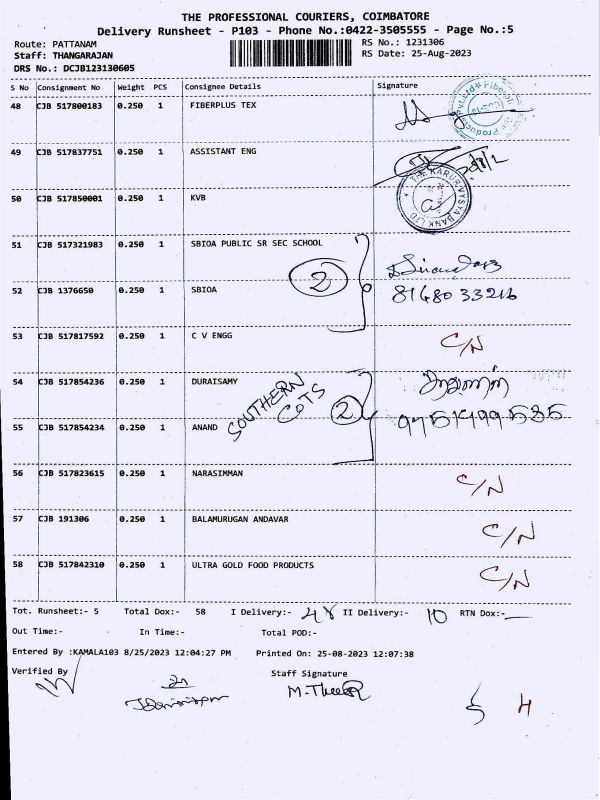 THE PROFESSIONAL COURIERS, COIMBATORE
Delivery Runsheet - P103 - Phone No.:0422-3505555 - Page No.:5
Route: PATTANAM RS No.: 1231306
Staff: THANGARAJAN RS Date: 25-Aug-2023
DRS No.: DCJB123130605
S No Consignment No Weight PCS Consignee Details Signature
48 CJB 517800183 0.250 1 FIBERPLUS TEX
49 CJB 517837751 0.250 1 ASSISTANT ENG
50 CJB 517850001 0.250 1 KVB
THE KARUR VYSYA BANK LTD
51 CJB 517321983 0.250 1 SBIOA PUBLIC SR SEC SCHOOL
2
52 CJB 1376650 0.250 1 SBIOA 8148033216
53 CJB 517817592 0.250 1 C V ENGG C/N
54 CJB 517854236 0.250 1 DURAISAMY
SOUTHERN COTS 2
55 CJB 517854234 0.250 1 ANAND
56 CJB 517823615 0.250 1 NARASIMMAN C/N
57 CJB 191306 0.250 1 BALAMURUGAN ANDAVAR C/N
58 CJB 517842310 0.250 1 ULTRA GOLD FOOD PRODUCTS C/N
Tot. Runsheet:- 5 Total Dox:- 58 I Delivery:- 48 II Delivery:- 10 RTN Dox:-
Out Time:- In Time:- Total POD:-
Entered By :KAMALA103 8/25/2023 12:04:27 PM Printed On: 25-08-2023 12:07:38
Verified By Staff Signature